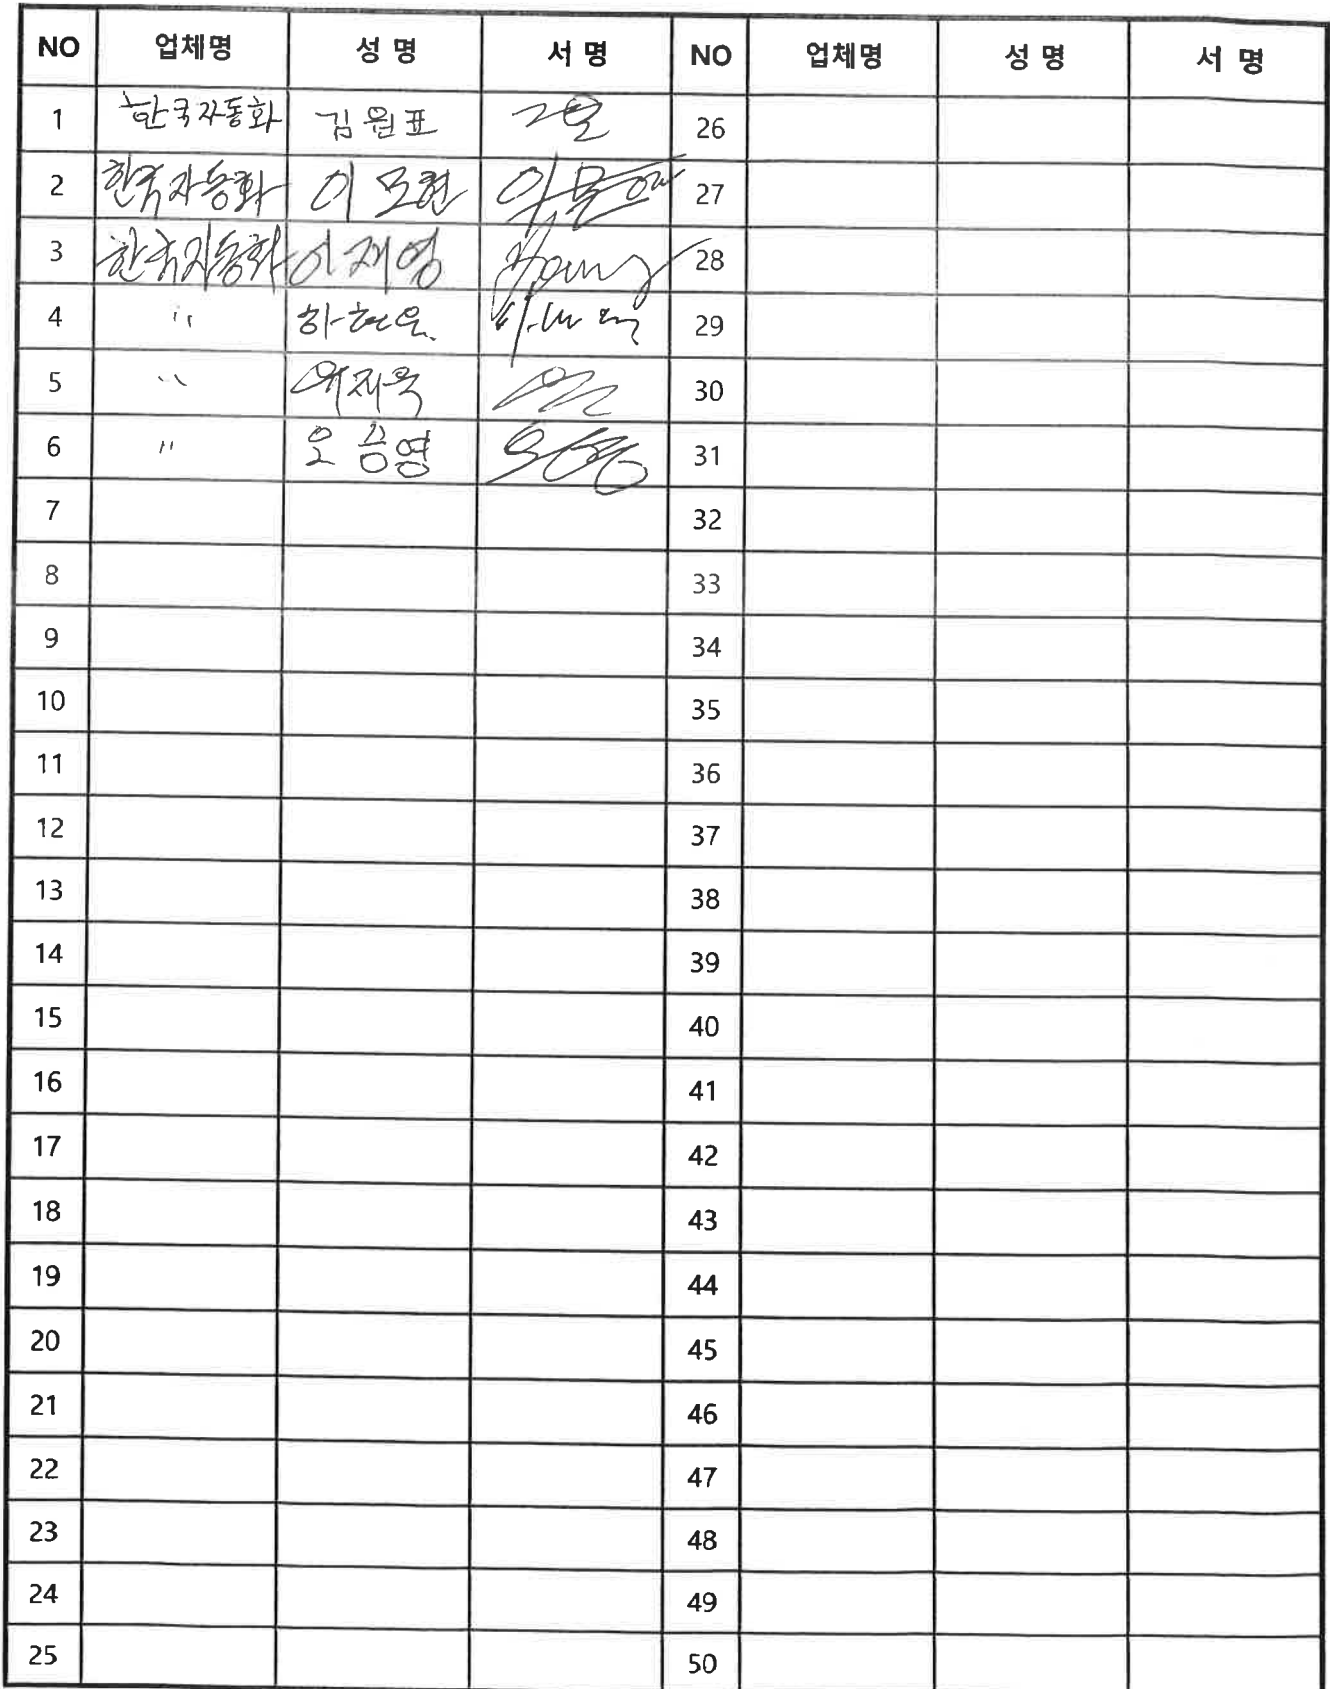 NO 업체명 성 명 서 명 NO 업체명 성 명 서 명
1 한국자동화 김원표 26
2 한국자동화 이모현 27
3 한국자동화 이재영 28
4 " 29
5 " 30
6 " 오승영 31
7 32
8 33
9 34
10 35
11 36
12 37
13 38
14 39
15 40
16 41
17 42
18 43
19 44
20 45
21 46
22 47
23 48
24 49
25 50